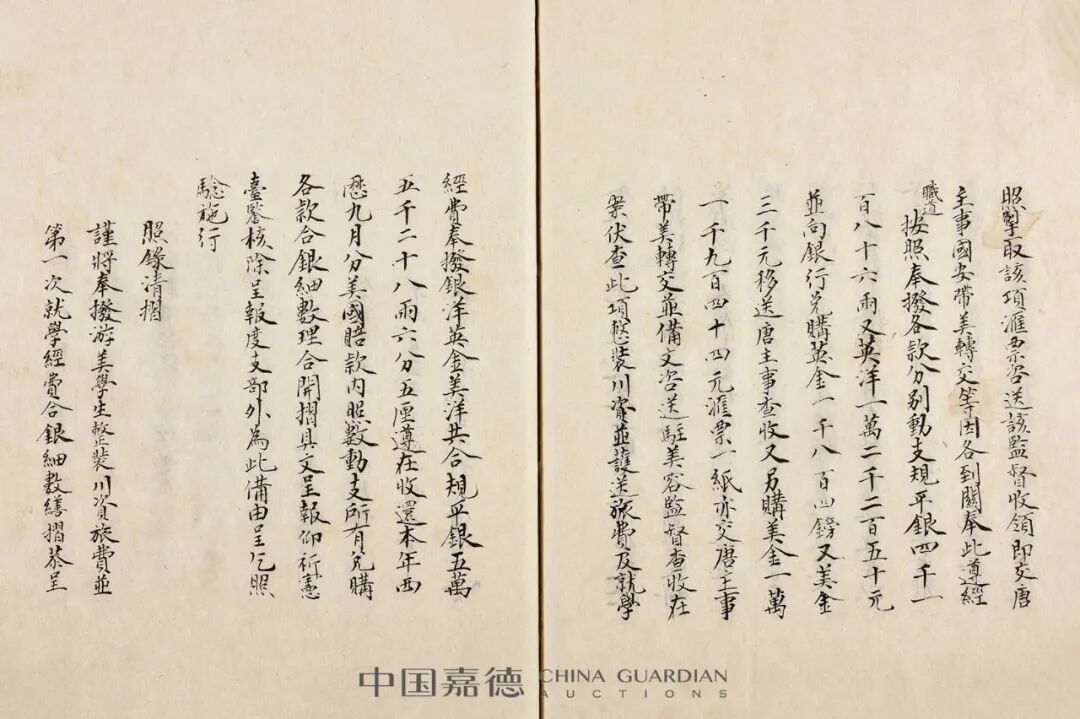 照掣取該項滙票咨送該監督收領即交唐
主事國安帶美轉交等因各到關奉此遵經
職道按照奉撥各款分别動支規平銀四千一
百八十六兩又英洋一萬二千二百五十元
並向銀行兑購英金一千八百四鎊又美金
三千元移送唐主事查收又另購美金一萬
一千九百四十四元滙票一紙亦交唐主事
帶美轉交並備文咨送駐美容監督查收在
案伏查此項整裝川資並護送旅費及就學
經費奉撥銀洋英金美洋共合規平銀五萬
五千二十八兩六分五厘遵在收還本年西
歷九月分美國賠款内照數動支所有兑購
各款合銀細數理合開摺具文呈報仰祈憲
臺鑒核除呈報度支部外為此備由呈乞照
驗施行
照錄清摺
謹將奉撥游美學生整裝川資旅費並
第一次就學經費合銀細數繕摺恭呈
中国嘉德 CHINA GUARDIAN
AUCTIONS